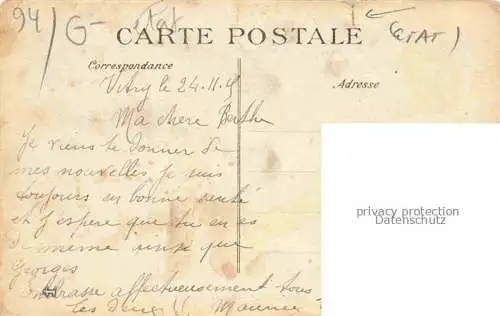 94/ G- etat (ETAT)
CARTE POSTALE
Correspondance
Adresse
Vitry le 24-11-
Ma chere Berthe
Je viens te donner de
mes nouvelles je suis
toujours en bonne santé
et j'espere que tu en es
de même insi que
Georges
embrasse affectueusement tous
les deux Maurice
privacy protection
(Datenschutz)